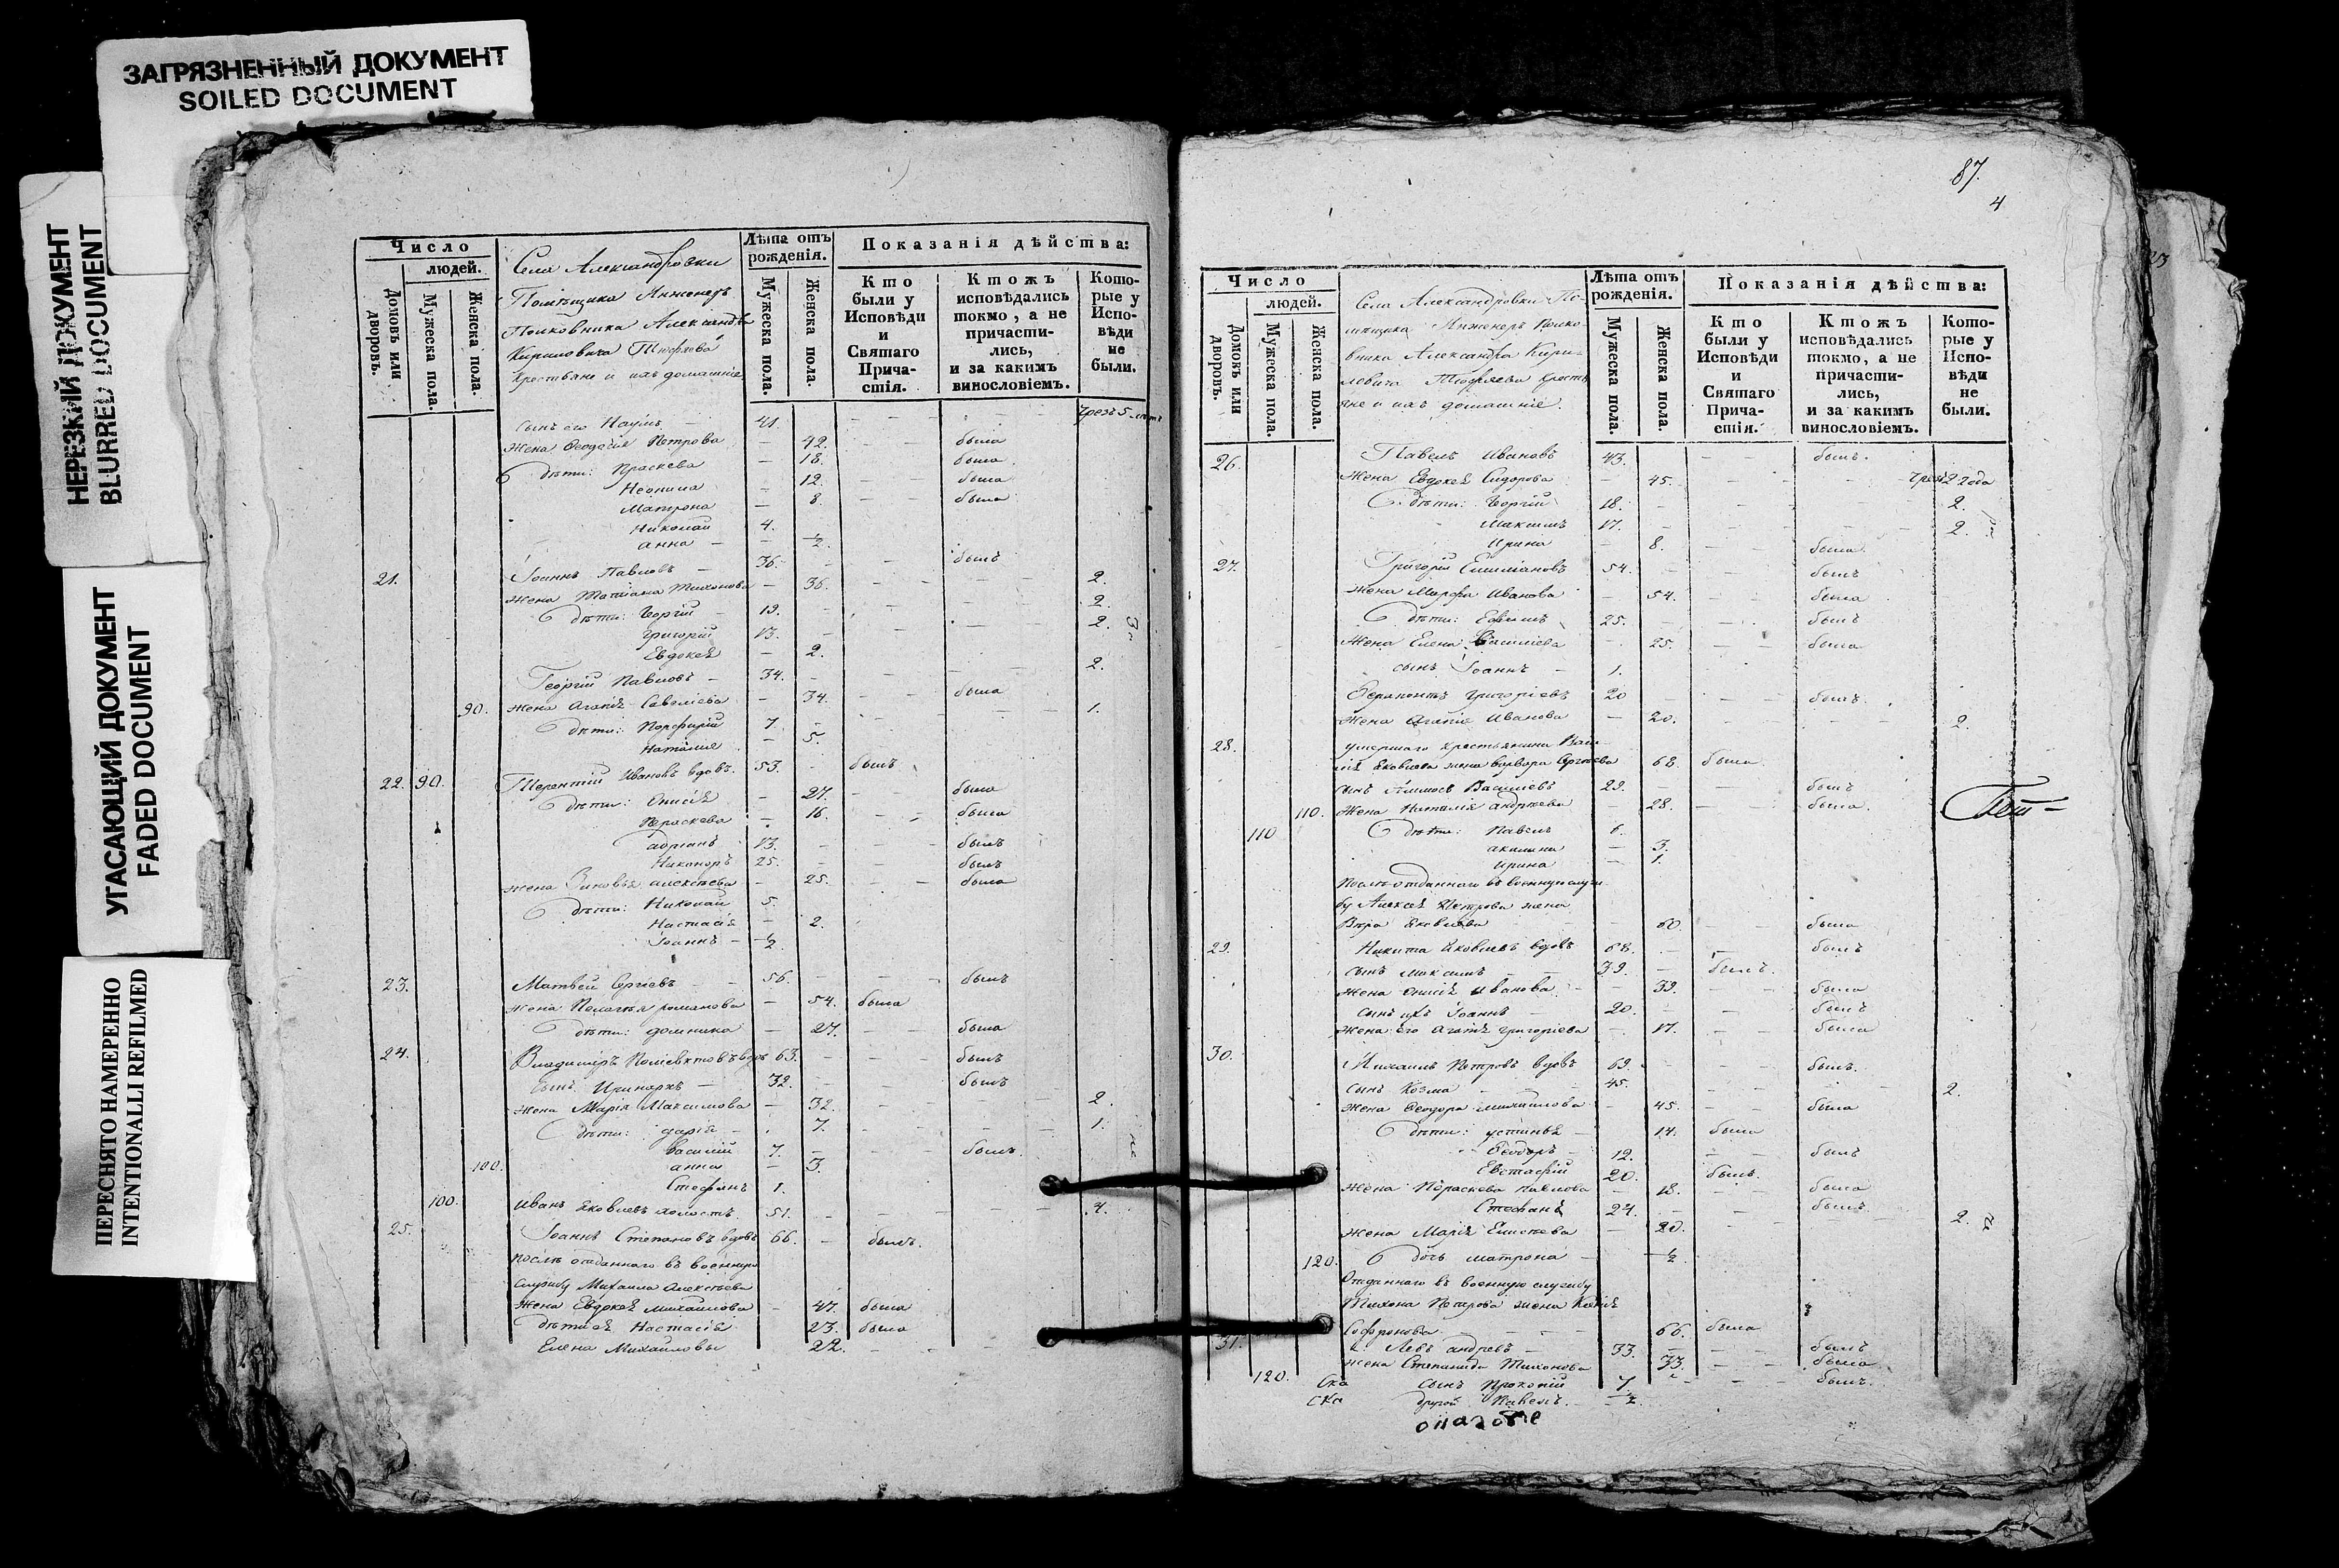 ЗАГРЯЗНЕННЫЙ ДОКУМЕНТ
SOILED DOCUMENT
НЕРЕЗКИЙ ДОКУМЕНТ
BLURRED DOCUMENT
УГАСАЮЩИЙ ДОКУМЕНТ
FADED DOCUMENT
ПЕРЕСНЯТО НАМЕРЕННО
INTENTIONALLI REFILMED
Число
людей.
Домовъ или дворовъ.
Мужеска пола.
Женска пола.
Села Александровки
Помѣщика Инженеръ
Полковника Александра
Кириловича
Крестьяне и ихъ домашніе
Лѣта отъ рожденія.
Мужеска пола.
Женска пола.
Показанія дѣйства:
Кто были у Исповѣди и Святаго Прича-стія.
Ктожъ исповѣдались токмо, а не причасти-лись, и за какимъ винословіемъ.
Кото-рые у Испо-вѣди не были.
сынъ его Наумъ 41.
жена Ѳеодосія Петрова 42. была
дѣти: Праскева 18. была
Неонила 12. была
Матрона 8. была
Николай 4.
анна ½.
21. Іоаннъ Павловъ 36. былъ
жена Татіана Тихонова 36. 2.
дѣти: Георгій 19. 2.
Григорій 13. 2.
Евдокея 2.
Георгій Павловъ 34. 2.
90. жена Агапія Савеліева 34. была
дѣти: Порфирій 7. 1.
Наталія 5.
22. 90. Терентій Ивановъ вдовъ. 53. былъ
дѣти: Анисія 27. была
Праскева 16. была
адріанъ 13. былъ
Никоноръ 25. былъ
жена Зиновія алексѣева 25. была
дѣти: Николай 5.
Настасія 2.
Іоаннъ ½.
23. Матвей Сергѣевъ 56. былъ
жена Пелагея романова 54. была
дѣти: домника 27. была
24. Владиміръ 63. былъ
сынъ Иринархъ 32. былъ
жена Марія Максимова 32. 2.
дѣти: дарія 7. 1.
василій 7. былъ
100. анна 3.
Стефанъ 1.
100. иванъ Яковлевъ холостъ. 51. 4.
25. Іоаннъ Степановъ вдовъ 66. былъ.
послѣ отданнаго въ военную
службу Михаила Алексѣева
жена Евдокея Михайлова 47. была
дѣти ея Настасія 23. была
Елена Михайловы 22.
87.
4
Число
людей.
Домовъ или дворовъ.
Мужеска пола.
Женска пола.
Села Александровки По-
мѣщика Инженеръ Полко-
вника Александра Кири-
ловича Кресть
яне и ихъ домашніе.
Лѣта отъ рожденія.
Мужеска пола.
Женска пола.
Показанія дѣйства:
Кто были у Исповѣди и Святаго Прича-стія.
Ктожъ исповѣдались токмо, а не причасти-лись, и за какимъ винословіемъ.
Кото-рые у Испо-вѣди не были.
26. Павелъ Ивановъ 43. былъ.
жена Евдокея Сидорова 45. чрезъ 2 года
дѣти: Георгій 18. 2.
Максимъ 17. 2.
Ирина 8. была.
27. Григорій Емиліановъ 54. былъ
жена Марфа Иванова 54. была
дѣти: Ефимъ 25. былъ
жена Елена Василіева 25. была
сынъ Іоаннъ 1.
Ферапонтъ Григоріевъ 20 былъ.
жена Агапія Иванова 20. 2.
28. умершаго крестьянина Васи-
лія Яковлева жена варвара Сергѣева 68. была
сынъ Василіевъ 29. былъ
110. жена Наталія андреева 28. была.
110 дѣти: Павелъ 6.
акилина 3.
ирина 1.
Послѣ отданнаго въ военную служ
бу Алексея Петрова жена
Вѣра Яковлева 60. была
29. Никита Яковлевъ вдовъ 68. былъ
сынъ Максимъ 39. былъ.
жена Анисія Иванова 39. была
сынъ ихъ Іоаннъ 20. былъ
жена его Агапія Григоріева 17. была
30. Михаилъ Петровъ вдовъ 69. былъ.
сынъ Козма 45. 2.
жена Ѳеодора Михайлова 45. была
дѣти: устинья 14. была
Ѳеодоръ 12. былъ
Евстафій 20. былъ.
жена Праскева павлова 18. была
Стефанъ 24. былъ
жена Марія Елисѣева 20. 2.
120. дочь матрона ½
Отданнаго въ военную службу
Тихона Петрова жена
Софронова 66. была
31. Левъ андреевъ 33. былъ
жена Степанида Тихонова 33. была
120. сынъ Прокопій 7 былъ.
другой Павелъ. ½.